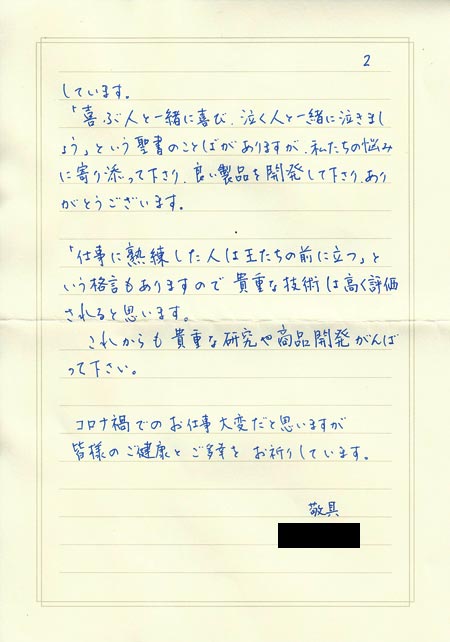 2
しています。
「喜ぶ人と一緒に喜び、泣く人と一緒に泣きまし
ょう」という聖書のことばがありますが、私たちの悩み
に寄り添って下さり、良い製品を開発して下さり、あり
がとうございます。
「仕事に熟練した人は王たちの前に立つ」と
いう格言もありますので貴重な技術は高く評価
されると思います。
これからも貴重な研究や商品開発がんば
って下さい。
コロナ禍でのお仕事大変だと思いますが
皆様のご健康とご多幸をお祈りしています。
敬具